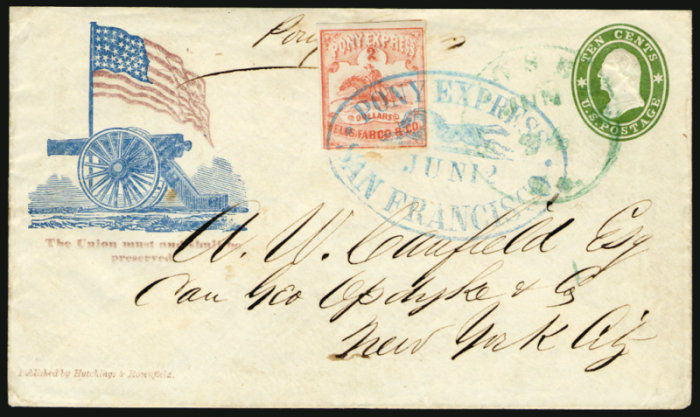 Pony
PONY EXPRESS
2
DOLLARS
WELLS FARGO & CO.
TEN CENTS
U.S. POSTAGE
PONY EXPRESS
JUN 12
SAN FRANCISCO.
The Union must and shall be
preserved
A. W. Canfield Esq
Care Geo Opdyke & Co
New York City
Published by Hutchings & Rosenfield.